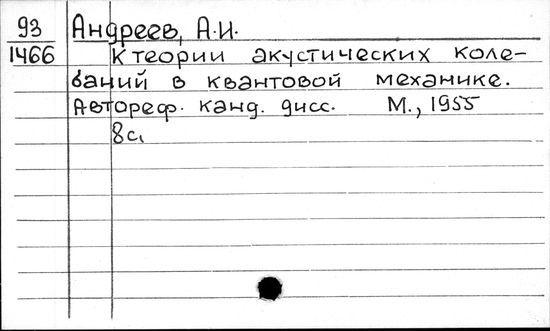 93 Андреев, А.И.
1466 К теории акустических коле-
баний в квантовой механике.
Автореф. канд. дисс. М., 1955
8с.